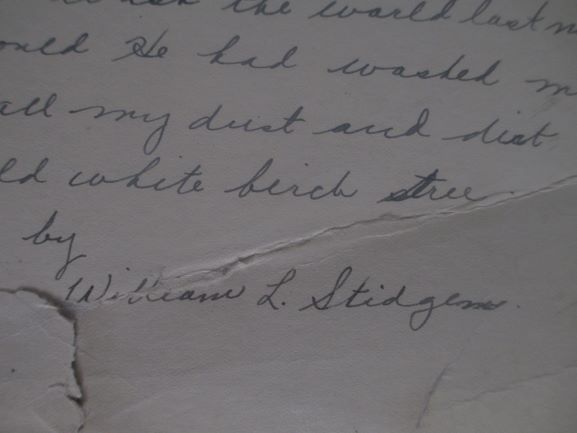 the world last n
ould He had washed m
all my dust and dirt
ld white birch tree.
by
William L. Stidgem